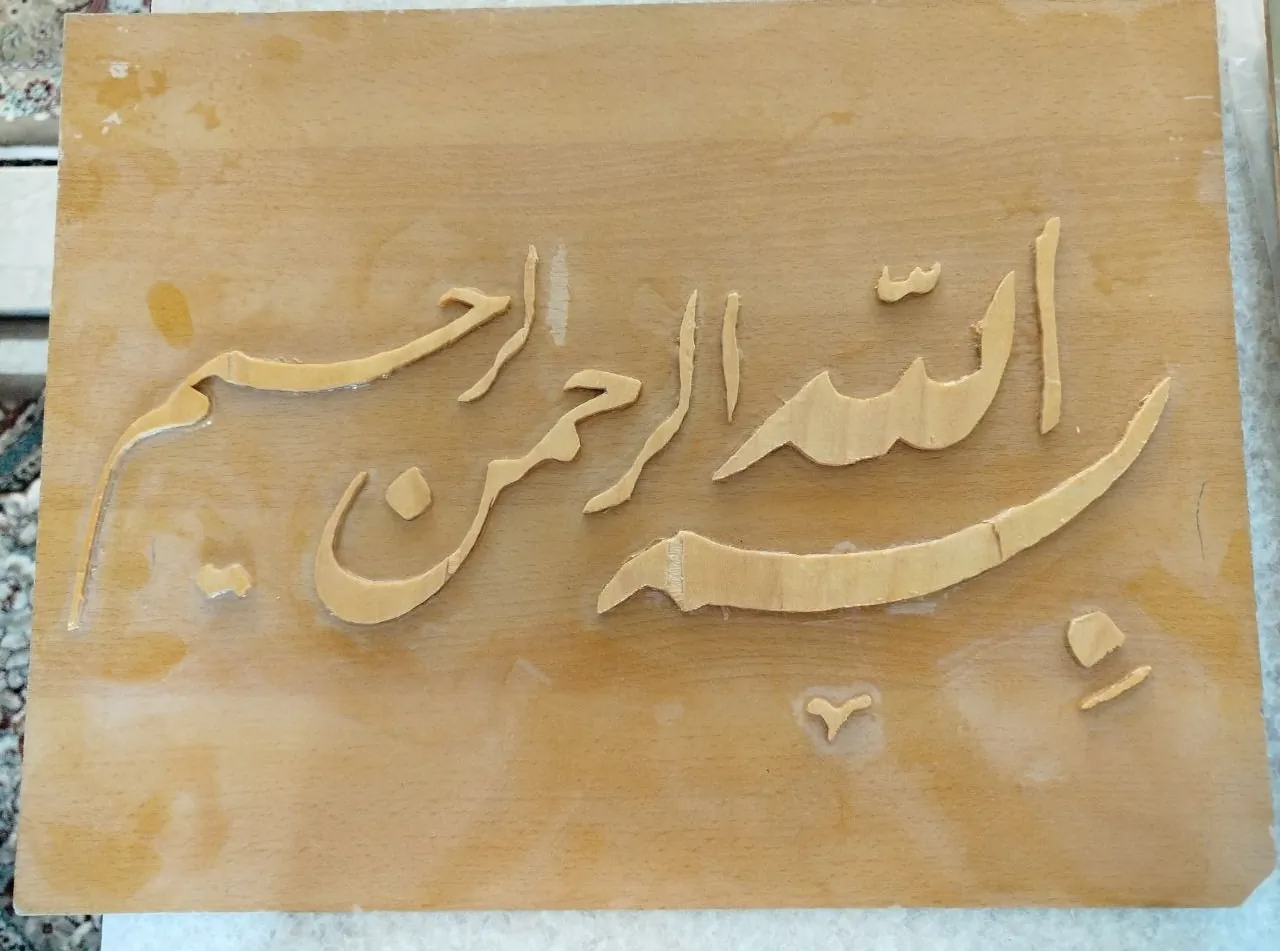 بِسم اللّه الرحمن لرحیم